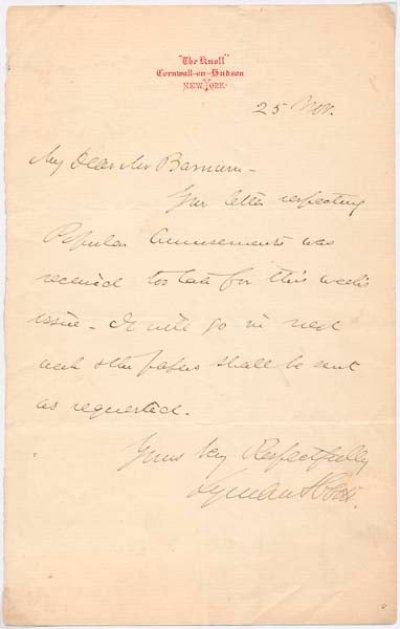 "The Knoll"
Cornwall-on-Hudson
NEW YORK.
25 Nov.
My Dear Mr Barnum -
Your letter respecting
Popular Amusements was
received too late for this week's
issue - It will go in next
week & the papers shall be sent
as requested.
Yours very Respectfully
Lyman Abbott.